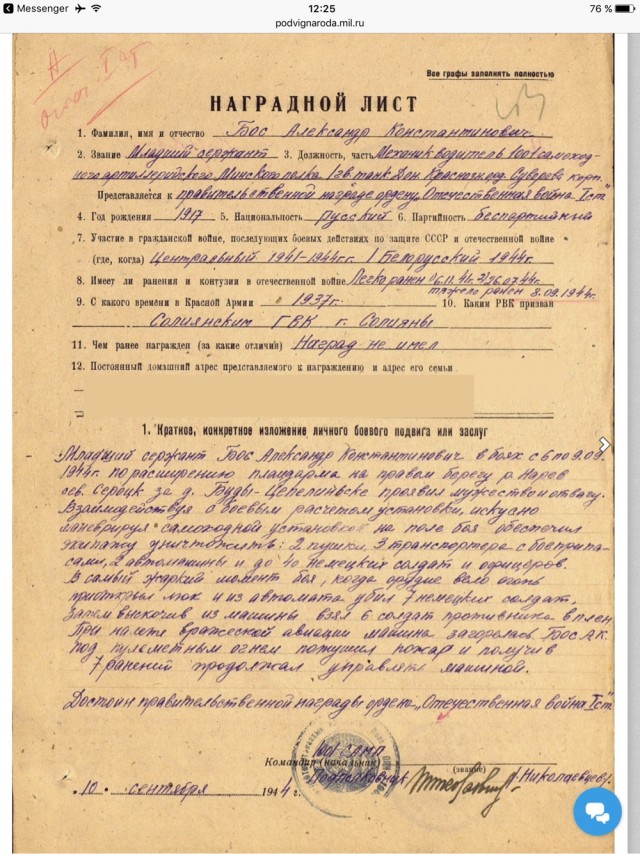 Messenger
12:25
76 %
podvignaroda.mil.ru
Все графы заполнять полностью
НАГРАДНОЙ ЛИСТ
1. Фамилия, имя и отчество Бос Александр Константинович
2. Звание Младший сержант 3. Должность, часть Механик водитель 1001 самоход-
ного артиллерийского Минского полка 1 гв. танк. Дон. Краснозн. орд. Суворова корп.
Представляется к правительственной награде ордену „Отечественная война I ст"
4. Год рождения 1917 5. Национальность русский 6. Партийность беспартийный
7. Участие в гражданской войне, последующих боевых действиях по защите СССР и отечественной войне
(где, когда) Центральный 1941-1944 гг. 1 Белорусский 1944 г.
8. Имеет ли ранения и контузии в отечественной войне Легко ранен 6.11.41 2) 26.07.44г.
тяжело ранен 8.09.1944г.
9. С какого времени в Красной Армии 1937г. 10. Каким РВК призван
ГВК г.
11. Чем ранее награжден (за какие отличия) Наград не имел
12. Постоянный домашний адрес представляемого к награждению и адрес его семьи
1. Краткое, конкретное изложение личного боевого подвига или заслуг
Младший сержант Бос Александр Константинович в боях с 6 по 9.09.
1944г. по расширению плацдарма на правом берегу р. Нарев
сев. Сероцк за д. Буды-Цепелинске проявил мужество и отвагу.
Взаимодействуя с боевым расчетом установки, искусно
маневрируя самоходной установкой на поле боя обеспечил
экипажу уничтожить: 2 пушки, 3 транспортера с боеприпа-
сами, 2 автомашины и до 40 немецких солдат и офицеров.
В самый жаркий момент боя, когда орудие вело огонь
приоткрыл люк и из автомата убил 7 немецких солдат,
затем выскочив из машины взял 6 солдат противника в плен
При налете вражеской авиации машина загорелась. Бос А.К.
под пулеметным огнем потушил пожар и получив
7 ранений продолжал управлять машиной.
Достоин правительственной награды ордена „Отечественная война I ст"
1001 САМП
Командир (начальник) (звание)
Подполковник
10 сентября 1944 г.